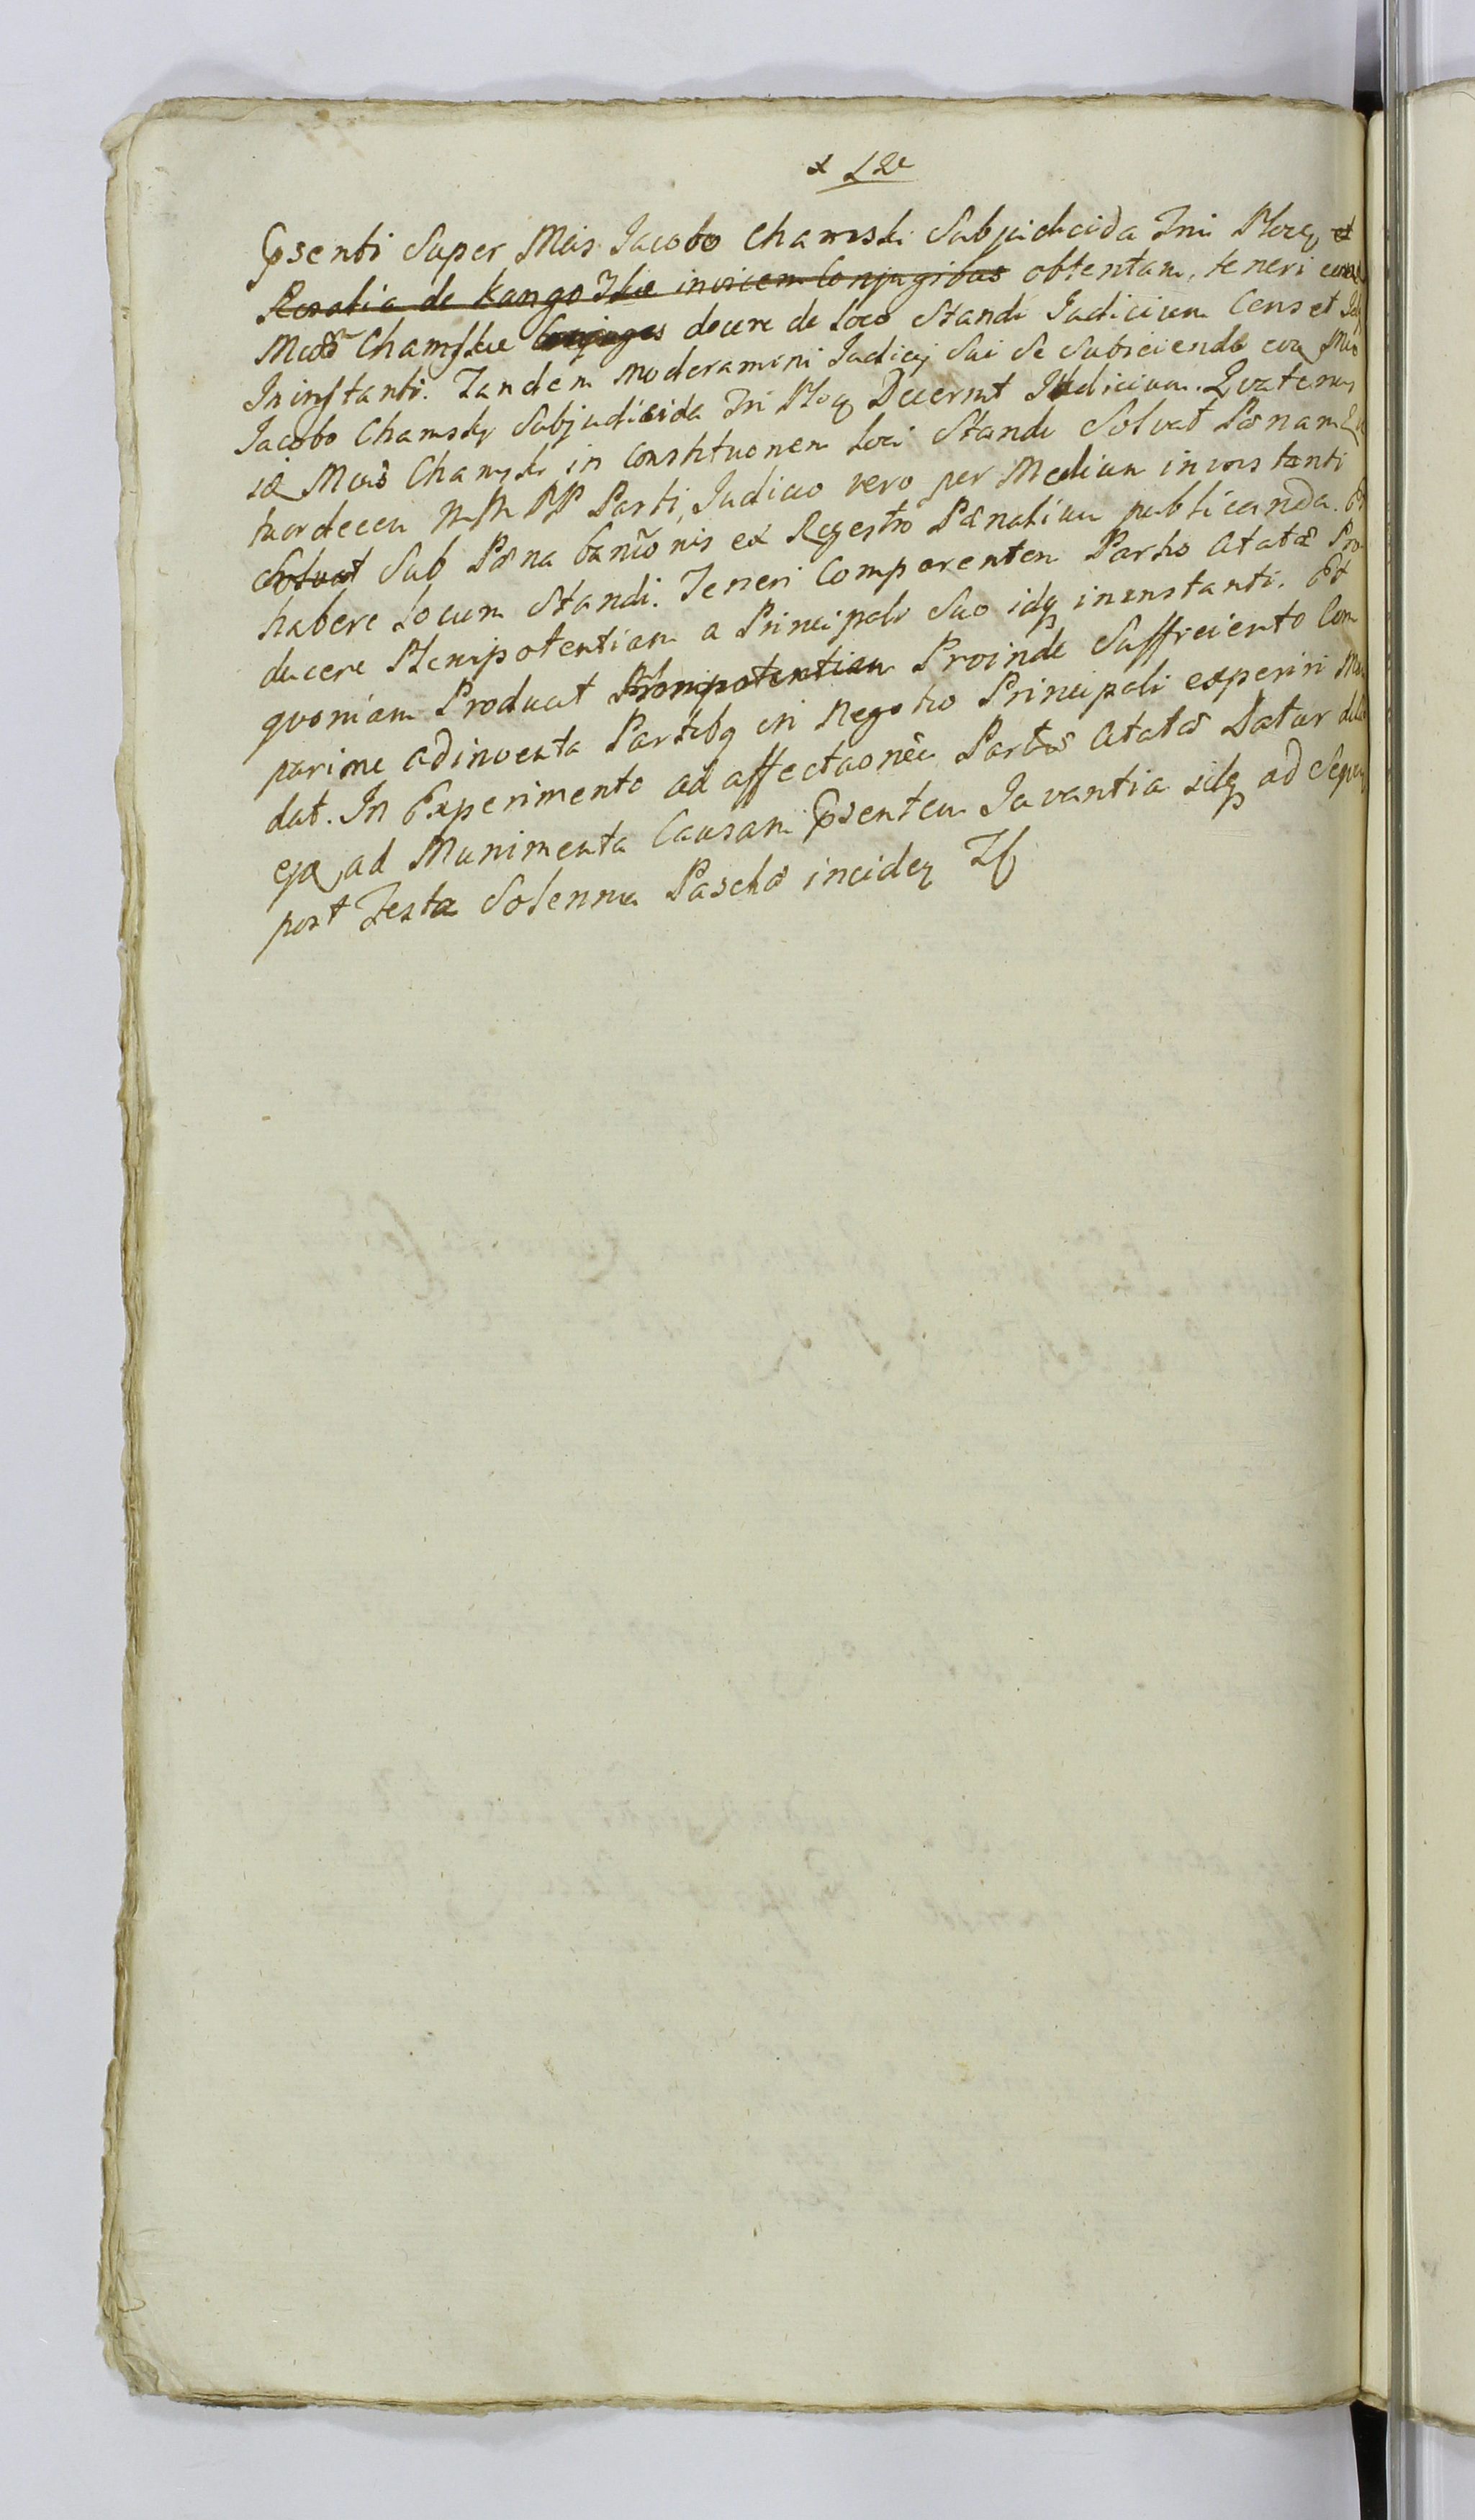 x 12
Psenti Super Mcis Jacobo Chamski Subjudicida Tri Plocen et
Rosalia de Kango Skie invicem Conjugibus obtentam, teneri
Mcos Chamskie Conjuges docere de loco Standi Judicium Censet Idq
In instanti. Tandem moderamini Judicij Sui se Subiciendo cum Mco
Jacobo Chamsky Subjudicida Tri Plocen Decernit Judicium. Quatenus
is Mcus Chamski in Constitutionem loci Standi Solvat Pænam
tuordecem M M P P Parti, Judicio vero per Mediam in instanti
Solvat Sub Pæna banitionis ex Regestro Pænalium publicanda. Et
habere locum Standi. Teneri Comparentem Partis Citatæ Pro
ducere Plenipotentiam a Principali Suo idq in instanti. Et
quoniam Producit Plenipotentiam Proinde Sufficiento Com
parime adinventa Partibq in Negotio Principali experiri Man
dat. In Experimento ad affectationem Partis Citatæ Datur
ejo ad Munimenta Causam Psentem Juvantia idq ad
post Festa Solennia Paschæ inciden